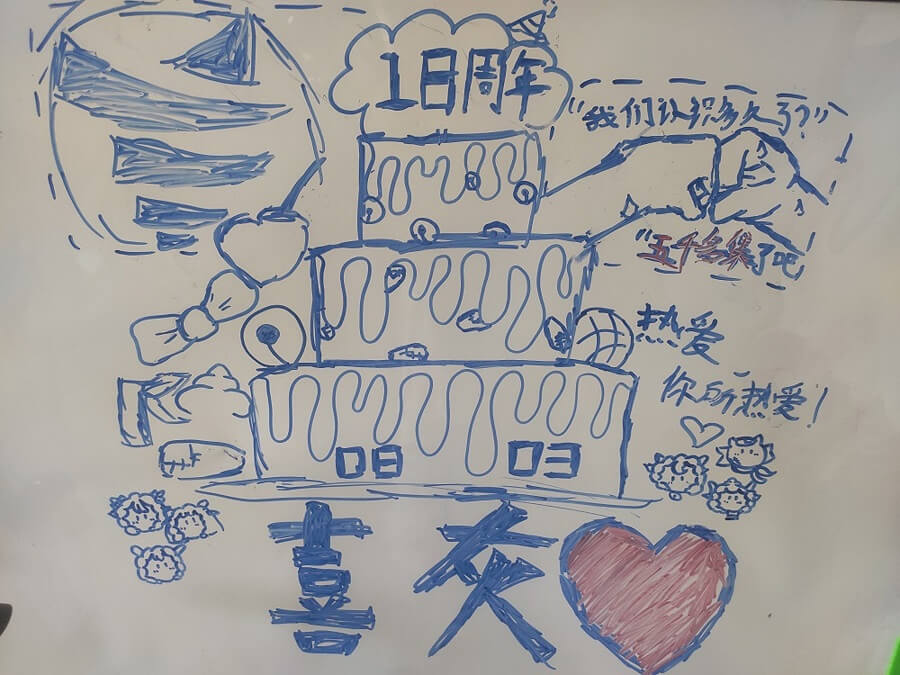 18周年
"我们认识多久了?"
"五千多集了吧
热爱
你所热爱!
08 03
喜灰